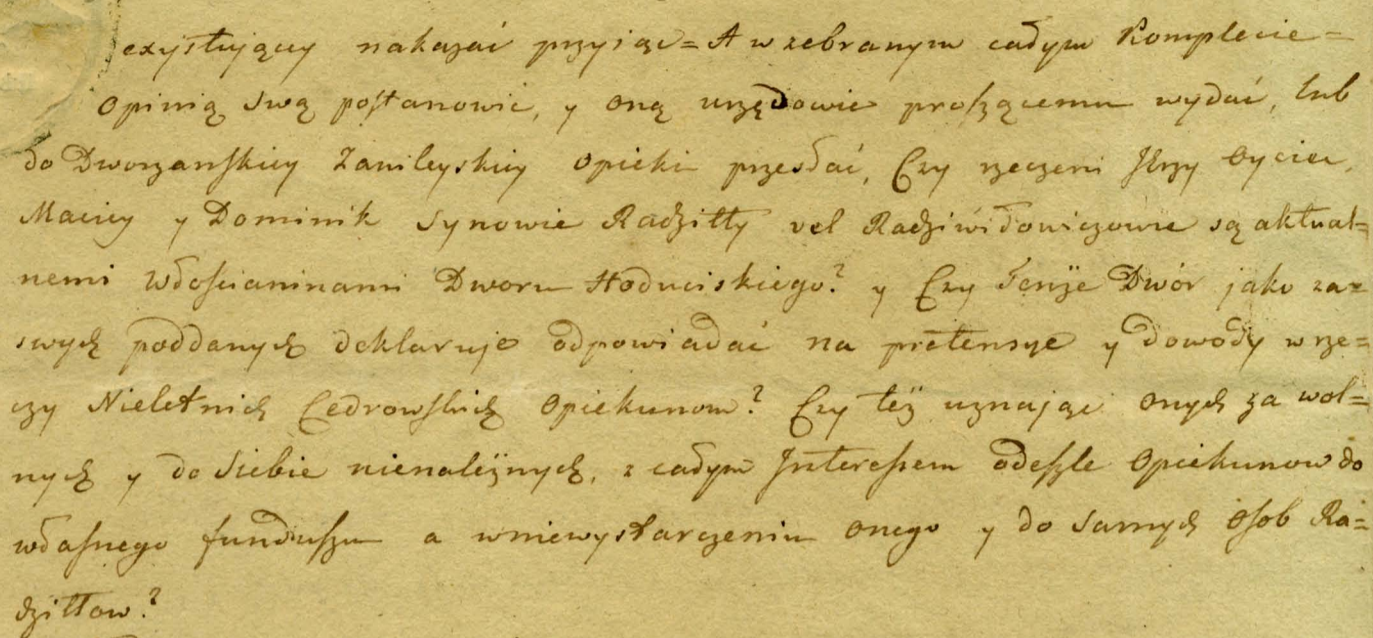 exystujący nakazać przyiąć = A w zebranym całym Komplecie =
Opinią swą postanowić, y oną urzędowie proszącemu wydać, lub
do Dworzanskiey Zawileyskiey Opieki przesłać, Czy rzeczeni Jerzy Oyciec,
Maciey y Dominik Synowie Radziłły vel Radziwiłowiczowie są aktual=
nemi Włościaninami Dworu Hoduciskiego? y Czy tenże Dwór jako za=
swych poddanych deklaruje odpowiadać na pretensye y dowody w rze=
czy Nieletnich Cedrowskich Opiekunom? Czy też uznając onych za wol=
nych y do siebie nienależnych, z całym Interessem odeszle Opiekunow do
własnego funduszu a w niewystarczeniu onego y do samych Osob Ra=
dziłłow?